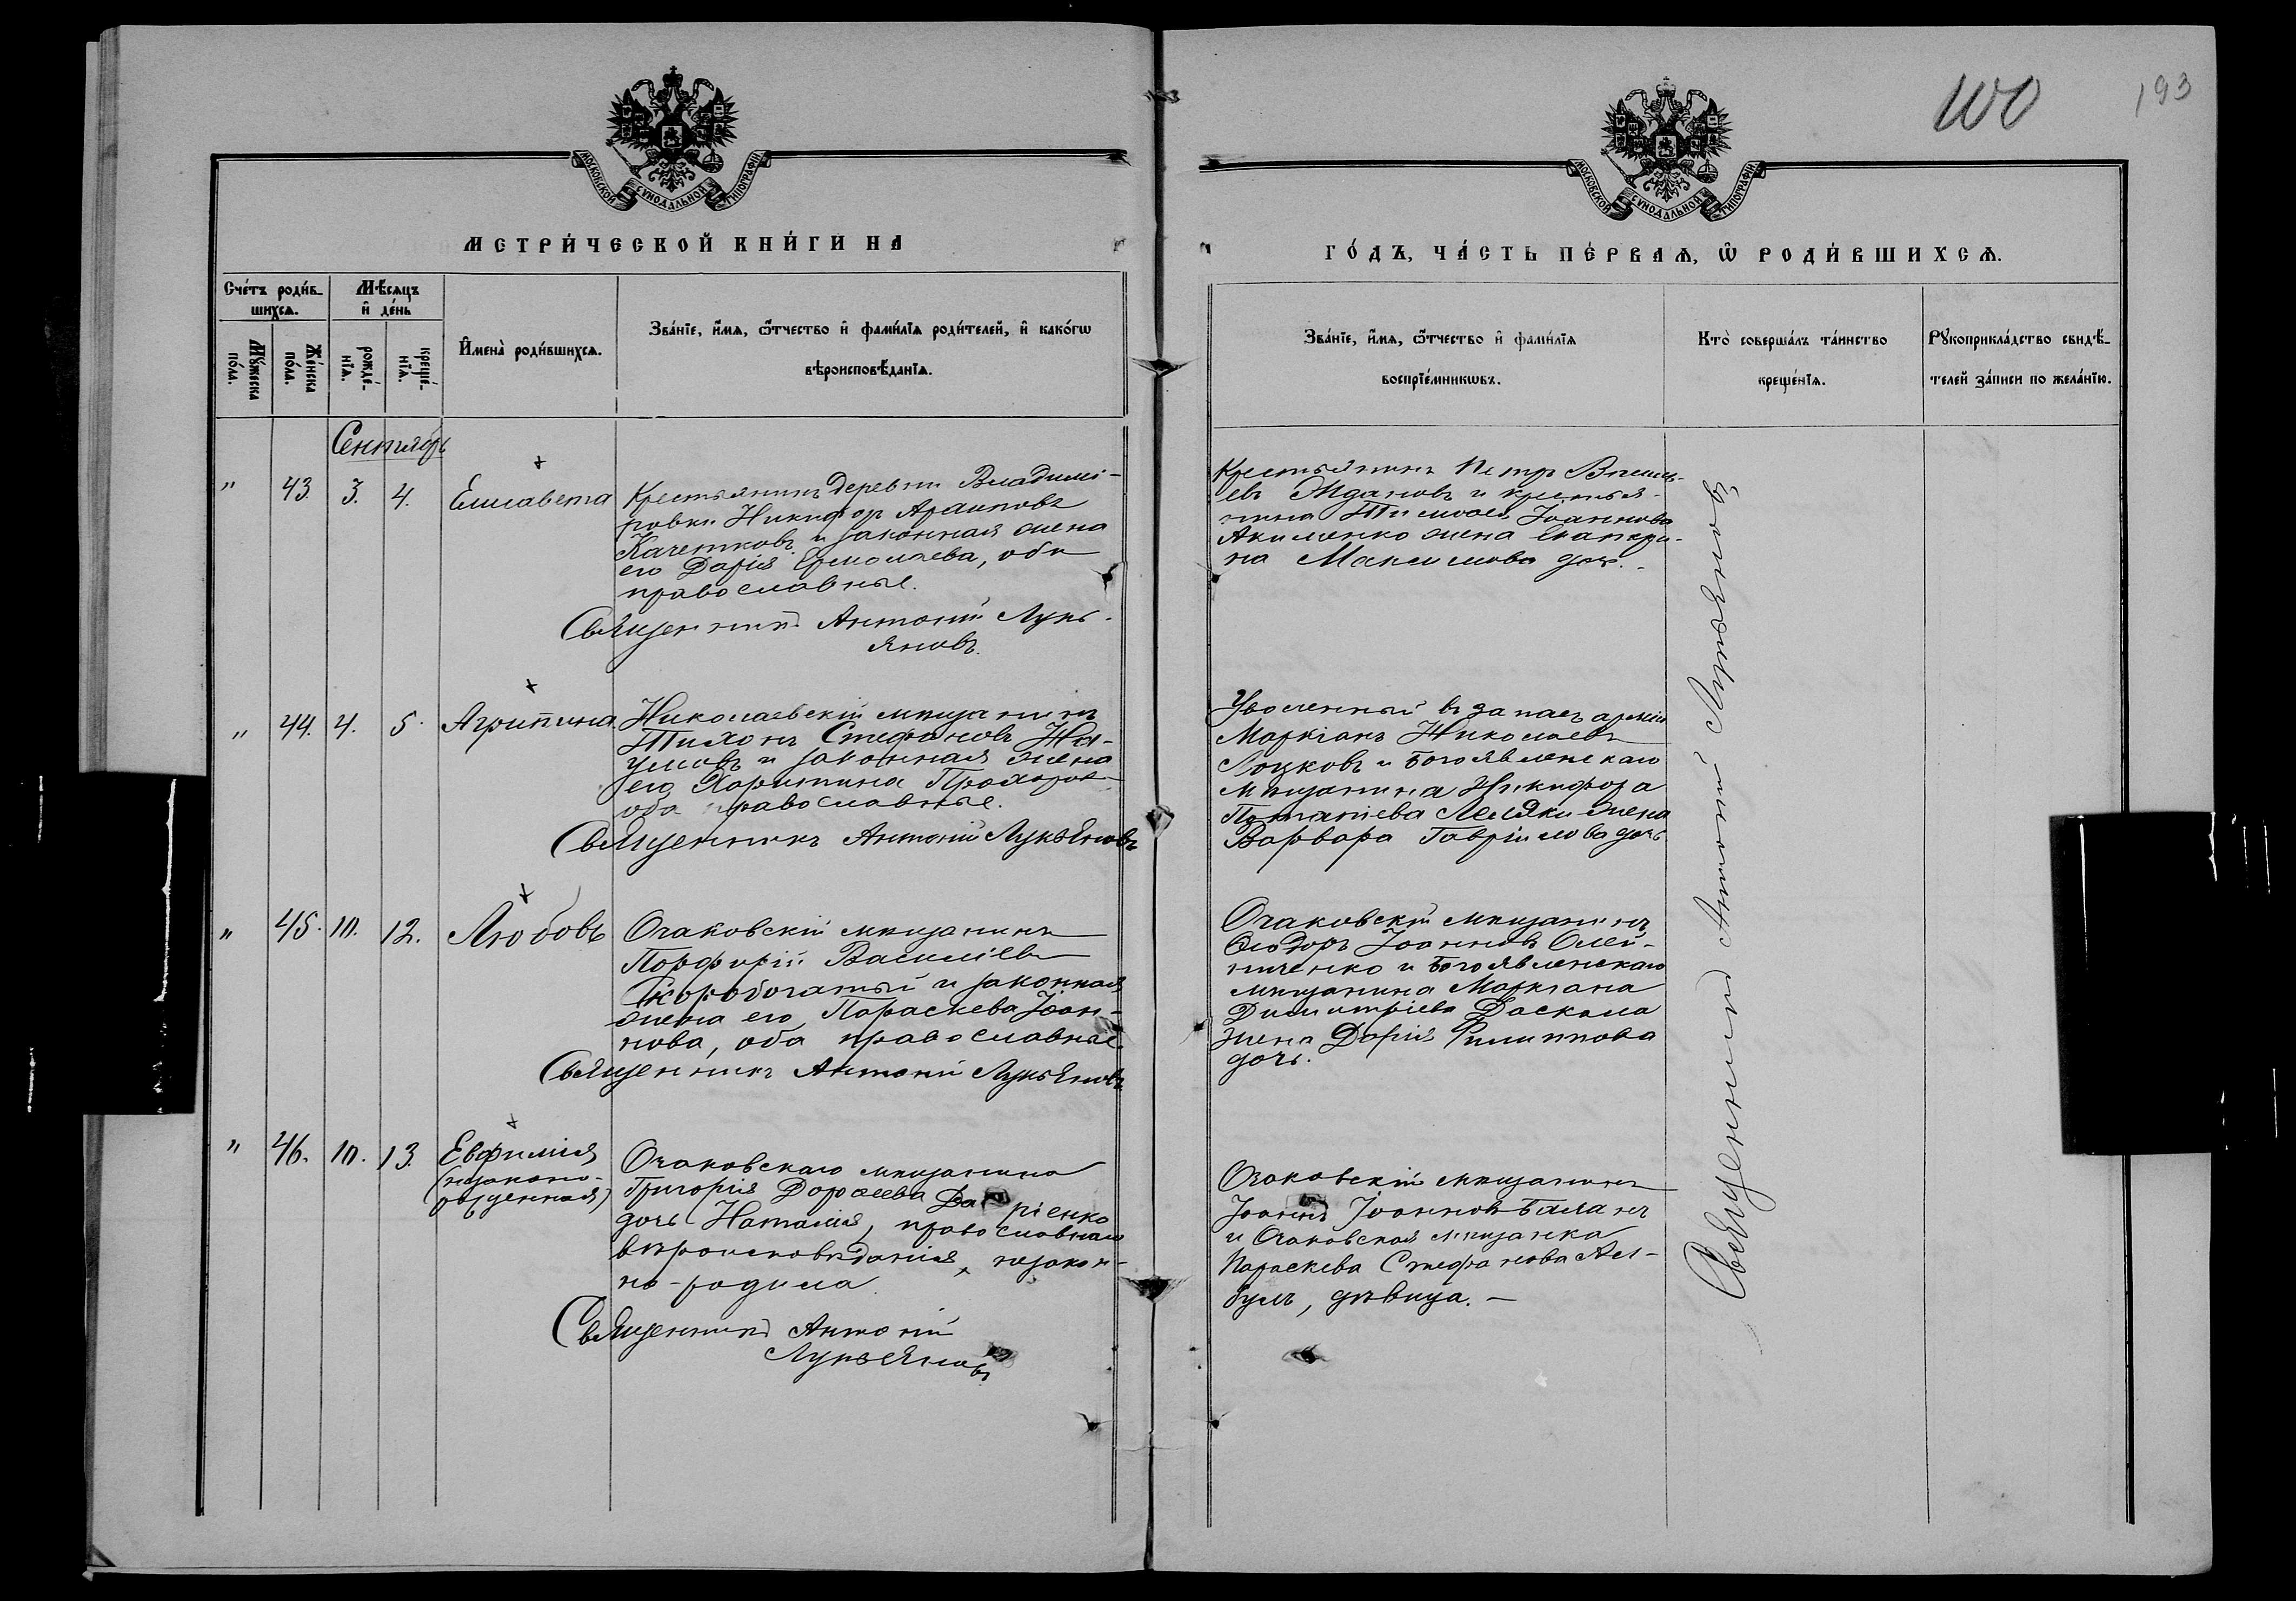 100
193
МОСКОВСКОЙ СѴНОДАЛЬНОЙ ТИПОГРАФІИ
МОСКОВСКОЙ СѴНОДАЛЬНОЙ ТИПОГРАФІИ
МЕТРИ́ЧЕСКОЙ КНИ́ГИ НА
ГО́ДЪ, ЧА́СТЬ ПЕ́РВАЯ, Ѡ҆ РОДИ́ВШИХСѦ.
Сче́тъ роди́в-
шихсѧ.
Мѣ́сяцъ
и҆ де́нь
Мꙋ́жеска
по́ла.
Же́нска
по́ла.
рожде́-
нїѧ.
креще́-
нїѧ.
И҆мена̀ роди́вшихсѧ.
Зва́нїе, и҆́мѧ, ѻ҆́тчество и҆ фами́лїѧ роди́телей, и҆ како́гѡ
вѣроисповѣ́данїѧ.
Зва́нїе, и҆́мѧ, ѻ҆́тчество и҆ фами́лїѧ
воспрїе́мникѡвъ.
Кто̀ соверша́лъ та́инство
креще́нїѧ.
Рꙋкоприкла́дство свидѣ́-
телей за́писи по жела́нїю.
Сентябрь
" 43. 3. 4. Елисавета
Крестьянинъ деревни Владимі-
ровки Никифоръ
Качетковъ и законная жена
его Дарія Ермолаева, оба
православные.
Священникъ Антоній Лукь-
яновъ.
Крестьянинъ Петръ
евъ Ждановъ и крестья-
нина Іоаннова
Акименко жена Екатери-
на Максимова дочь.
" 44. 4. 5. Агрипина
Николаевскій мѣщанинъ
Тихонъ Стефановъ На-
умовъ и законная жена
его Харитина
оба православные.
Священникъ Антоній Лукьяновъ
Уволенный въ запасъ арміи
Маркіанъ Николаевъ
Лоцковъ и Богоявленскаго
мѣщанина Никифора
Потапіева жена
Варвара Гавріилова дочь
" 45. 10. 12. Любовь
Очаковскій мѣщанинъ
Порфирій Василіевъ
Скоробогатый и законная
жена его Параскева Іоан-
нова, оба православные.
Священникъ Антоній Лукьяновъ
Очаковскій мѣщанинъ
Ѳеодоръ Іоанновъ Олей-
ниченко и Богоявленскаго
мѣщанина Маркіана
Димитріева Даскала
жена Дарія Филиппова
дочь.
" 46. 10. 13. Евфимія
(незаконо-
рожденная)
Очаковскаго мѣщанина
Григорія Дорофеева
дочь Наталія, православнаго
вѣроисповѣданія, незакон-
но-родила.
Священникъ Антоній
Лукьяновъ
Очаковскій мѣщанинъ
Іоаннъ Іоанновъ Баланъ
и Очаковская мѣщанка
Параскева Стефанова
дѣвица.
Священникъ Антоній Лукьяновъ